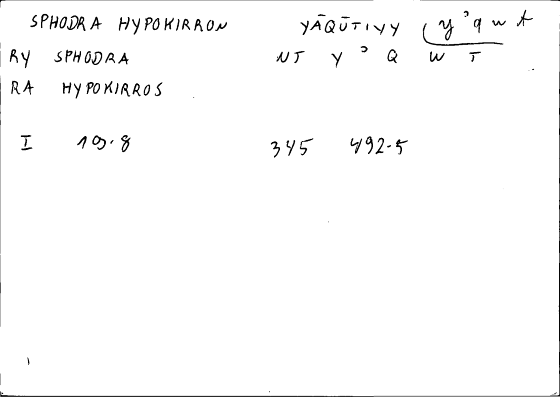 SPHODRA HYPOKIRRON YĀQŪTIYY (y ʾ q w t
RY SPHODRA NT Y ʾ Q W T
RA HYPOKIRROS
I 19.8 345 492.5